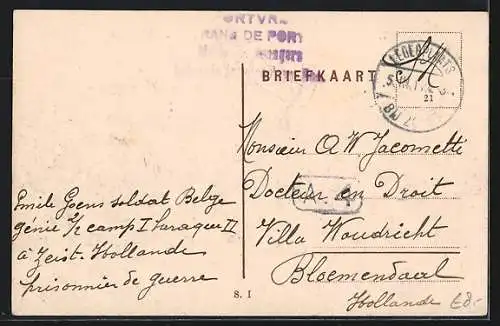 PORTVRIJ
FRANC DE PORT
BRIEFKAART
21
Monsieur A W Jacometti
Docteur en Droit
Villa Woudricht
Bloemendaal
Hollande
Emile Goens soldat Belge
génie 2/2 camp I baraque II
à Zeist. Hollande
prisonnier de guerre
S. I
£8.-